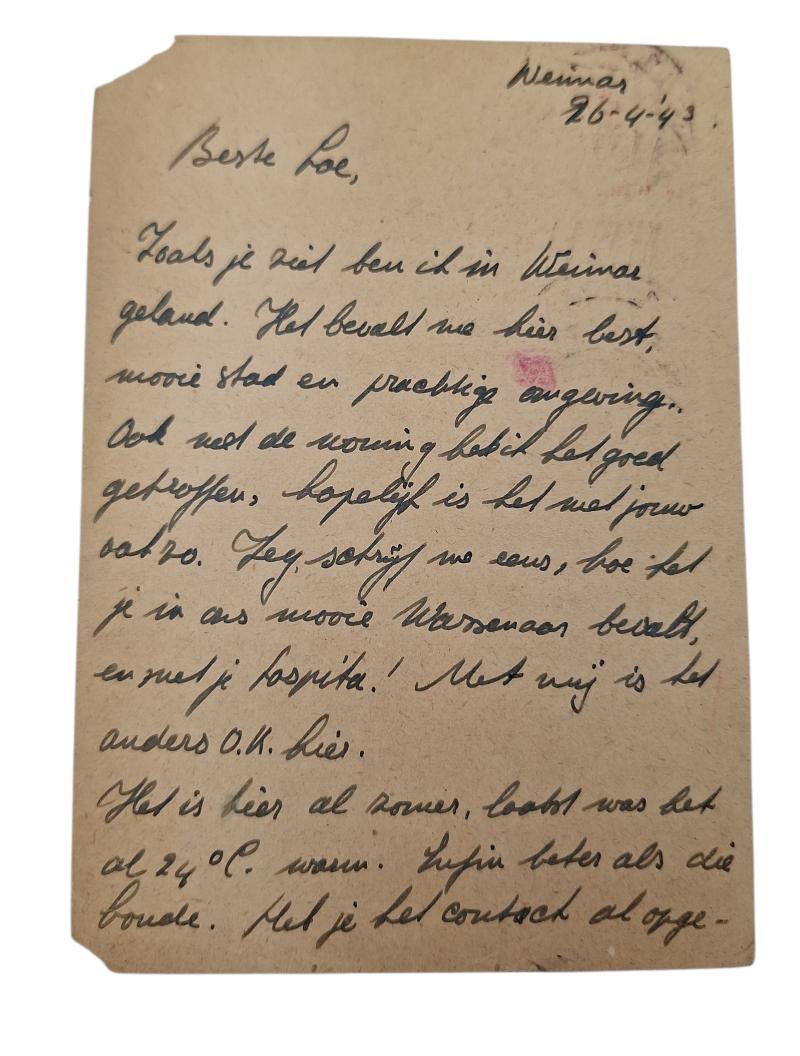 Weimar
26-4-'43.
Beste Loe,
Zoals je ziet ben ik in Weimar
geland. Het bevalt me hier best,
mooie stad en prachtige omgeving..
Ook met de woning heb ik het goed
getroffen, hopelijk is het met jouw
ook zo. Zeg, schrijf me eens, hoe het
je in ons mooie Wassenaar bevalt,
en met je hospita! Met mij is het
anders O.K. hier.
Het is hier al zomer, laatst was het
al 24°C. warm. beter als die
koude. Heb je het contact al opge-